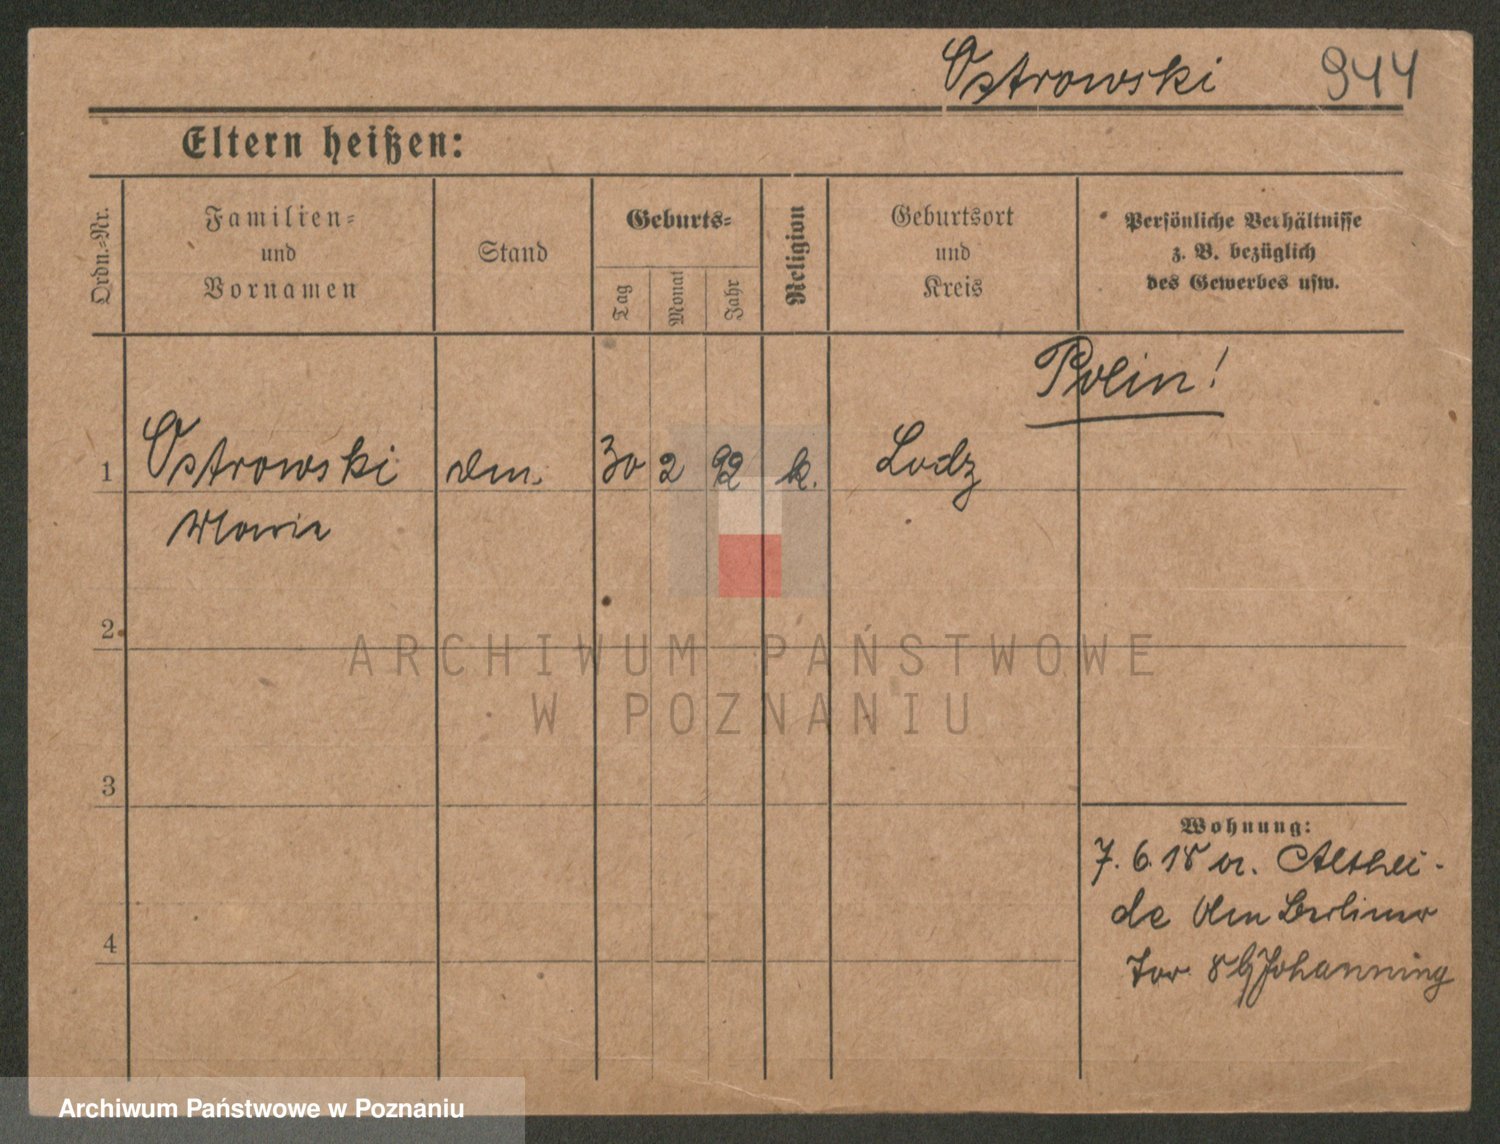 Ostrowski 944
Eltern heißen:
Ordn.-Nr.
Familien-
und
Vornamen
Stand
Geburts-
Tag
Monat
Jahr
Religion
Geburtsort
und
Kreis
Persönliche Verhältnisse
z. B. bezüglich
des Gewerbes usw.
Polin!
1 Ostrowski 30 2 92 k. Lodz
Maria
2
3
4
Wohnung:
7. 6. 18 v. Althei-
de Am Berliner
Tor 8 Johanning
ARCHIWUM PAŃSTWOWE
W POZNANIU
Archiwum Państwowe w Poznaniu